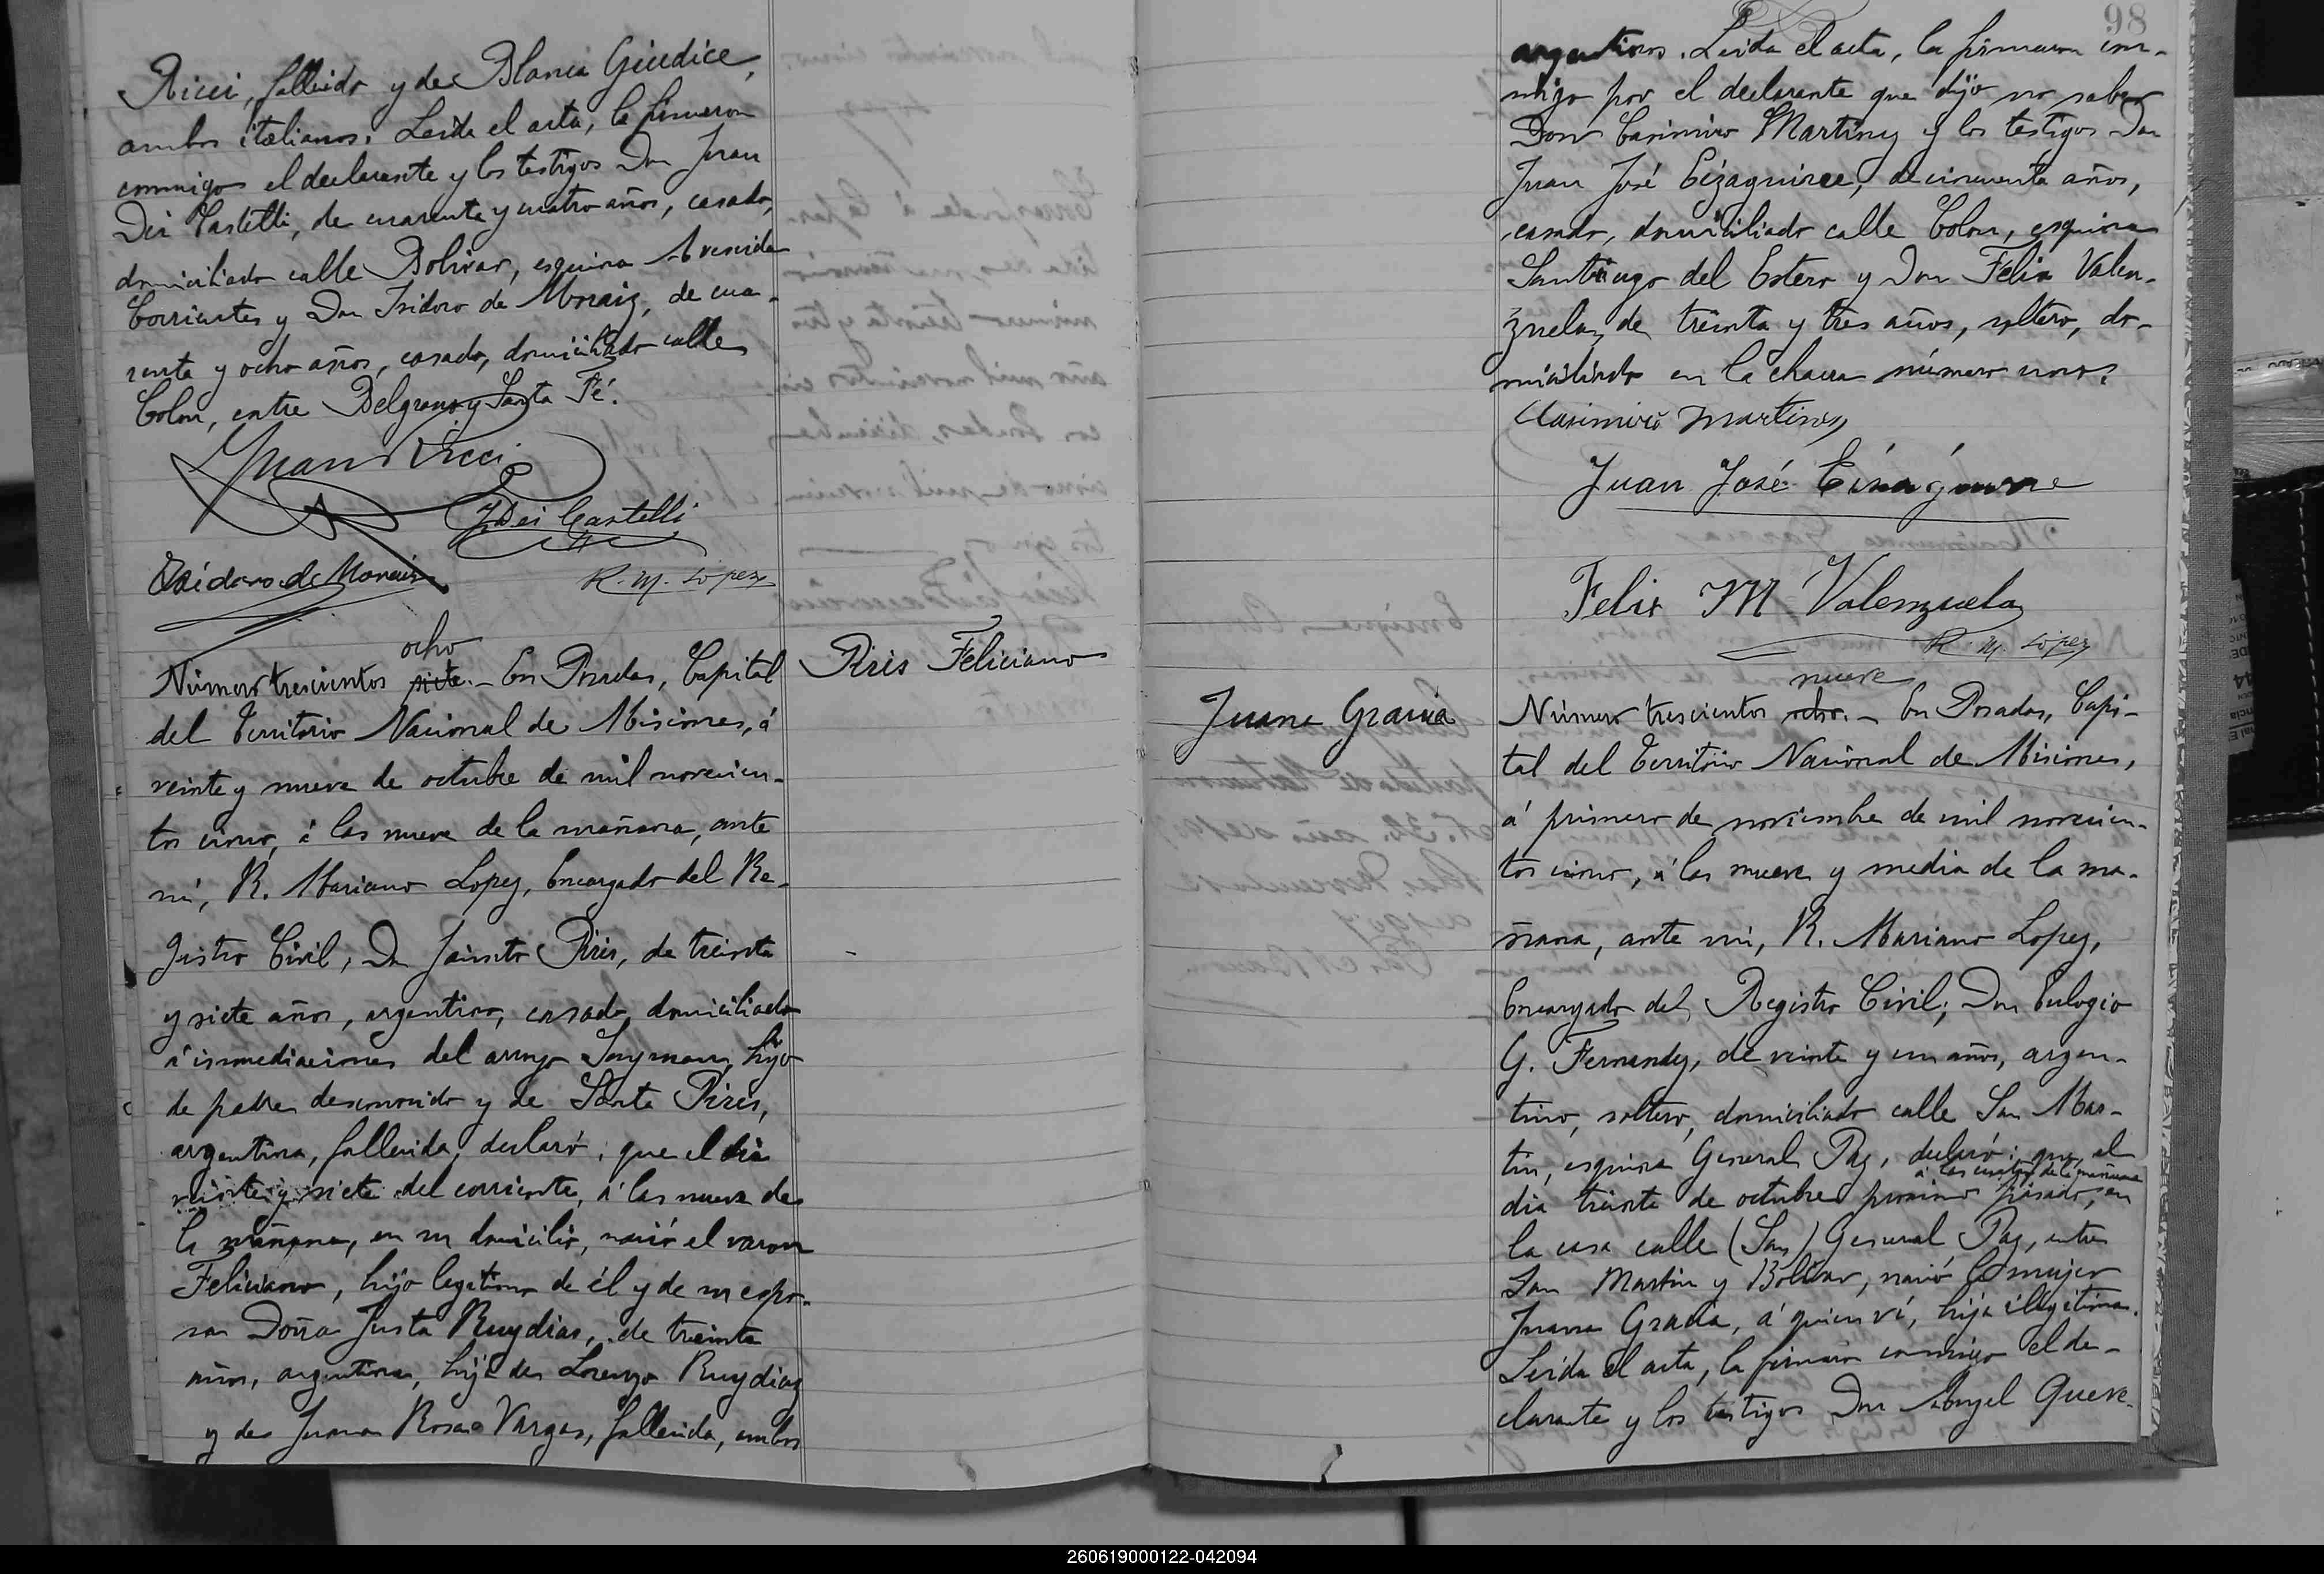 Ricci, fallecido y de Blanca Giudice,
ambos italianos. Leida el acta, la firmaron
conmigo el declarante y los testigos Don Juan
Dei Castelli, de cuarenta y cuatro años, casado,
domiciliado calle Bolivar, esquina Avenida
Corrientes y Don Isidoro de Moraiz, de cua-
renta y ocho años, casado, domiciliado calle
Colon, entre Belgrano y Santa Fé.
Juan Ricci
J Dei Castelli
Isidoro de Moraiz
R. M. Lopez
ocho
Número trescientos siete. - En Posadas, Capital
del Territorio Nacional de Misiones, á
veinte y nueve de octubre de mil novecien-
tos cinco, á las nueve de la mañana, ante
mí, R. Mariano Lopez, Encargado del Re-
gistro Civil; Dn Jacinto Piris, de treinta
y siete años, argentino, casado, domiciliado
á inmediaciones del arroyo hijo
de padre desconocido y de Santa Piris,
argentina, fallecida, declaró: que el dia
veinte y siete del corriente, á las nueve de
la mañana, en su domicilio, nació el varon
Feliciano, hijo legitimo de él y de su espo-
sa Doña Justa Ruydias, de treinta
años, argentina, hija de Lorenzo Ruydiaz
y de Juana Rosa Vargas, fallecida, ambos
Piris Feliciano
98
argentinos. Leida el acta, la firmaron con-
migo por el declarante que dijo no saber
Don Casimiro Martinez y los testigos Don
Juan José Eizaguirre, de cincuenta años,
casado, domiciliado calle Colon, esquina
Santiago del Estero y Don Felix Valen-
zuela, de treinta y tres años, soltero, do-
miciliado en la chacra número uno.
Casimiro Martinez
Juan José Eizaguirre
Felix M Valenzuela
R. M. Lopez
Juana Gracia
nueve
Número trescientos ocho. - En Posadas, Capi-
tal del Territorio Nacional de Misiones,
á primero de noviembre de mil novecien-
tos cinco, á las nueve y media de la ma-
ñana, ante mí, R. Mariano Lopez,
Encargado del Registro Civil; Don Eulogio
G. Fernandez, de veinte y un años, argen-
tino, soltero, domiciliado calle San Mar-
tin, esquina General Paz, declaró: que el
á las cuatro de la mañana
dia treinta de octubre proximo pasado, en
la casa calle (San) General Paz, entre
San Martin y Bolivar, nació la mujer
Juana Gracia, á quien ví, hija ilegitima.
Leida el acta, la firmaron conmigo el de-
clarante y los testigos Don Angel Queve-
260619000122-042094